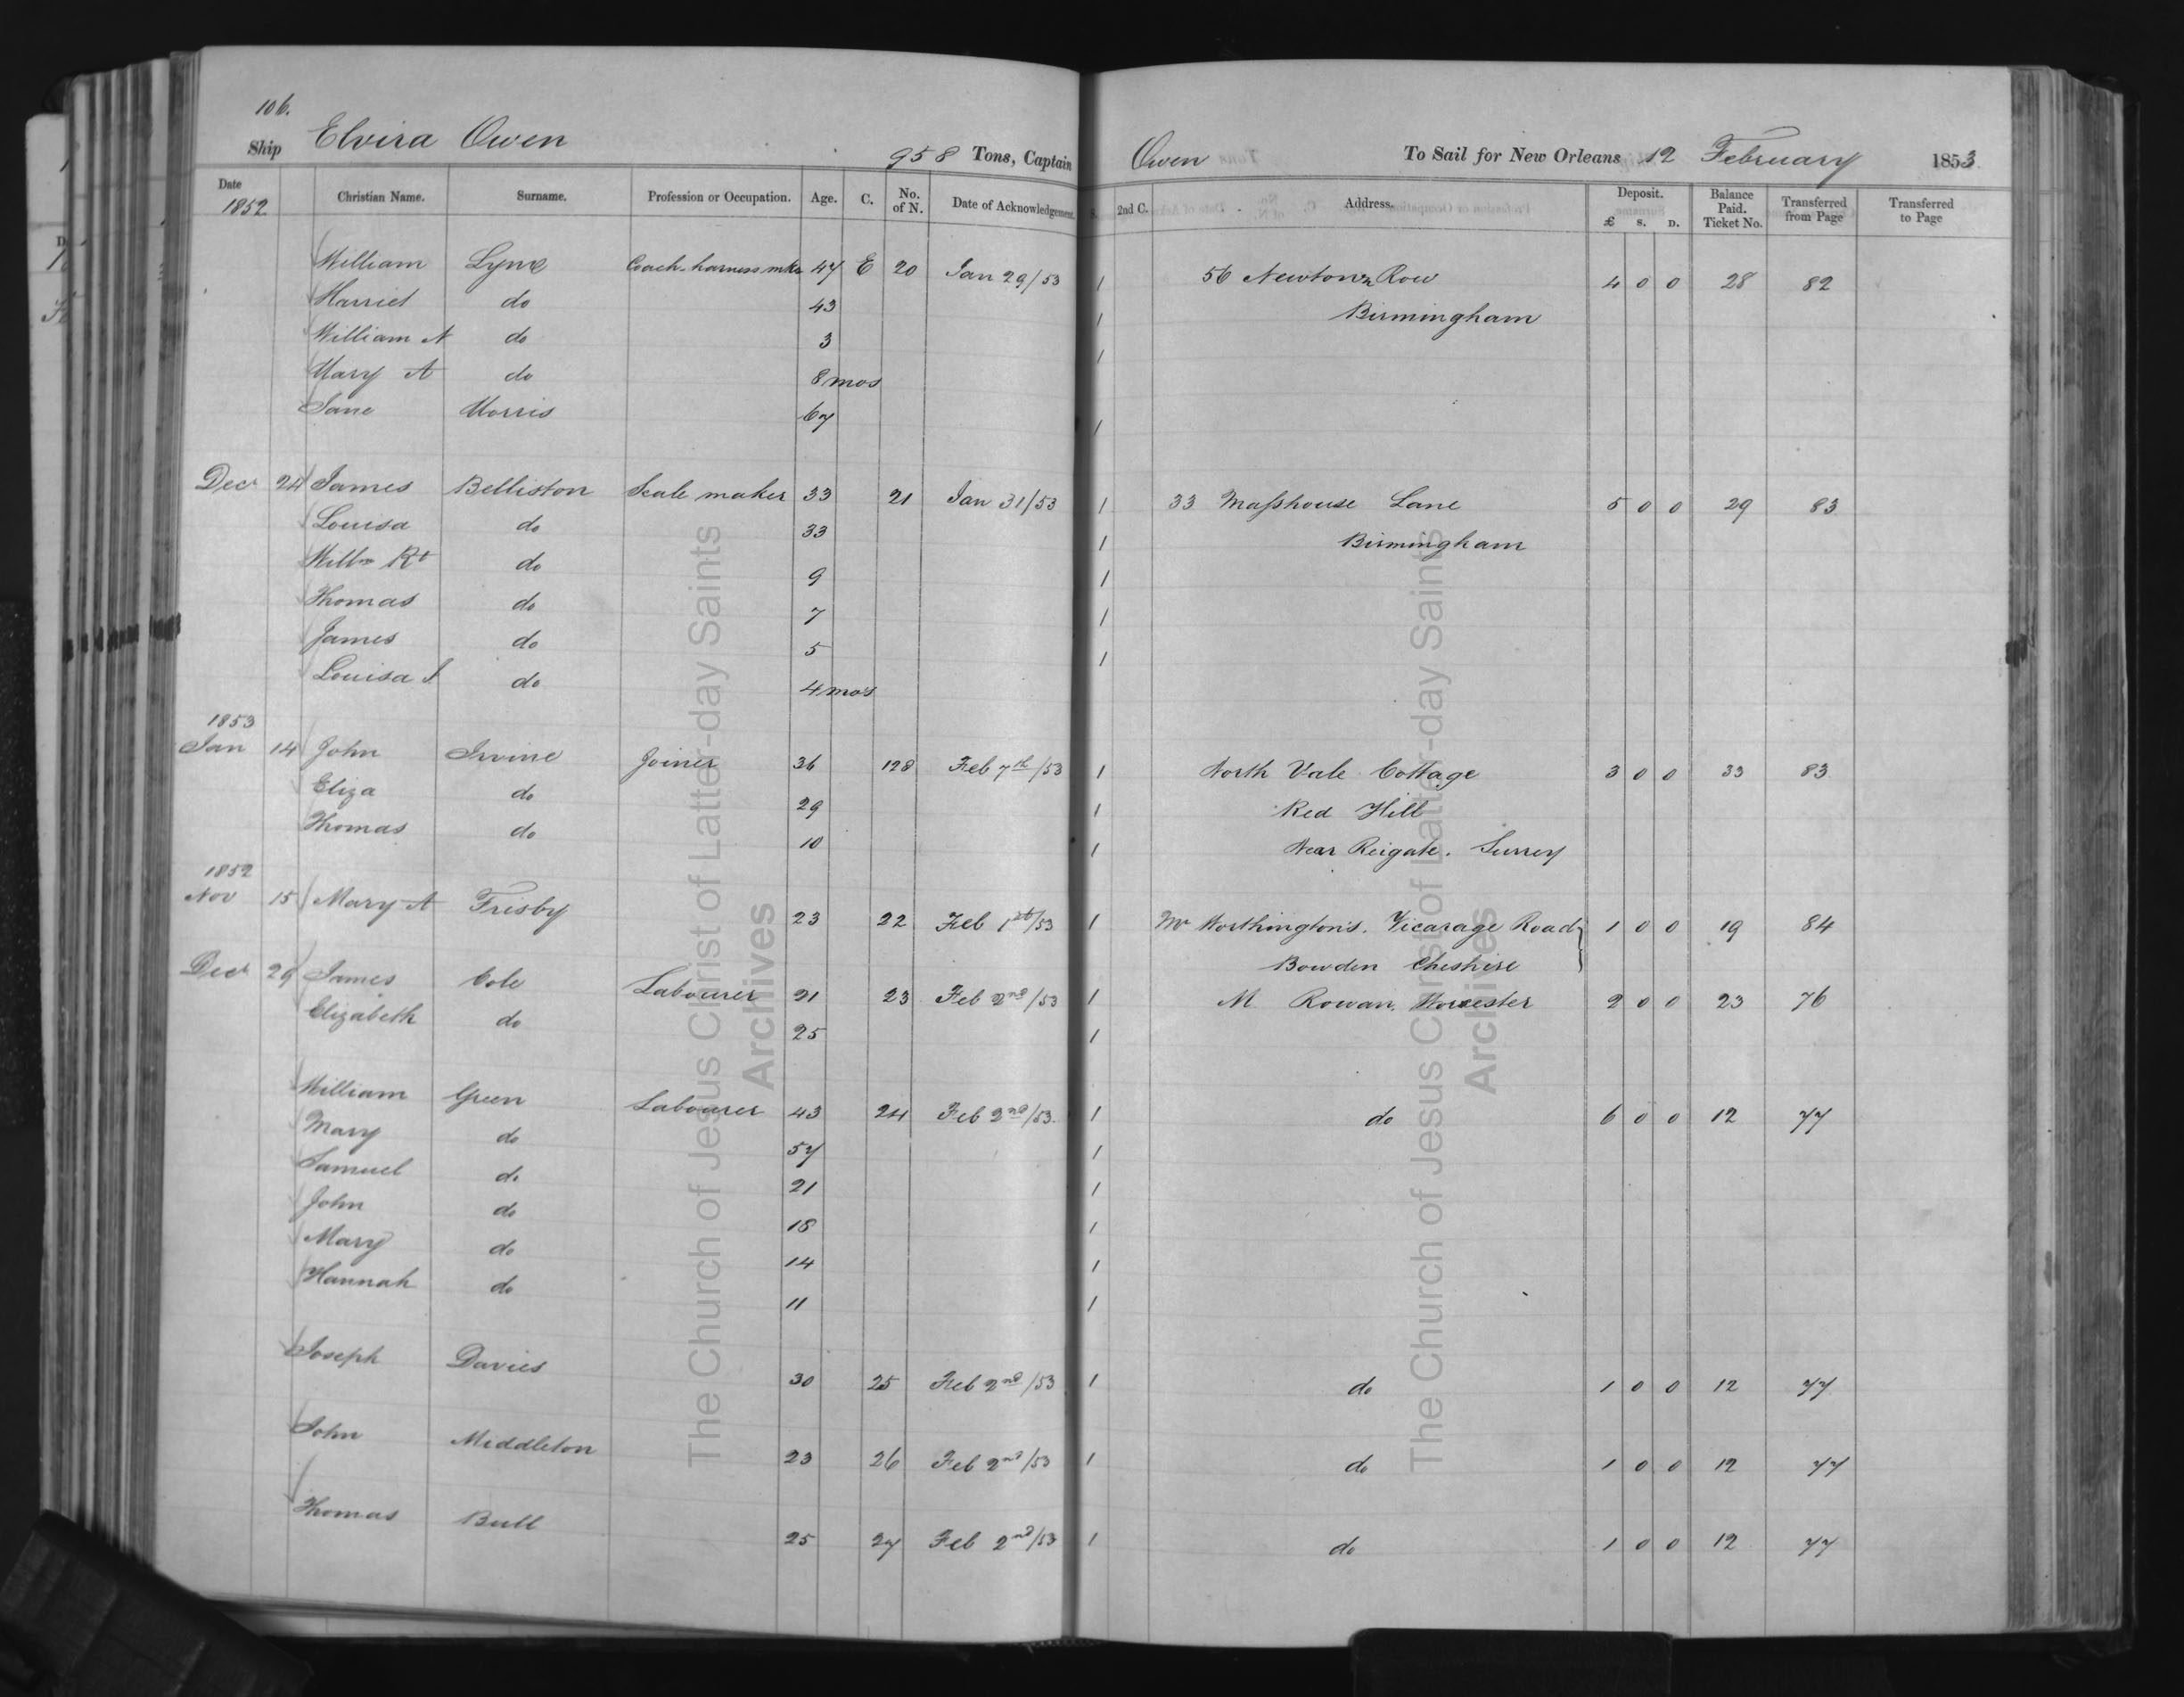 106.
Ship Elvira Owen 958 Tons, Captain Owen To Sail for New Orleans 12 February 1853
Date 1852 Christian Name. Surname. Profession or Occupation. Age. C. No. of N. Date of Acknowledgement. S. 2nd C. Address. Deposit. £ s. D. Balance Paid. Ticket No. Transferred from Page Transferred to Page
William Lyne Coach-harness mker 47 E 20 Jan 29/53 1 56 Newton Row 4 0 0 28 82
Harriet do 43 1 Birmingham
William A do 3 1
Mary A do 8 mos
Jane Morris 67 1
Decr 24 James Belliston Scale maker 33 21 Jan 31/53 1 33 Masshouse Lane 5 0 0 29 83
Louisa do 33 1 Birmingham
Willm Rt do 9 1
Thomas do 7 1
James do 5 1
Louisa J do 4 mos
1853
Jan 14 John Irvine Joiner 36 128 Feb 7th/53 1 North Vale Cottage 3 0 0 33 83
Eliza do 29 1 Red Hill
Thomas do 10 1 Near Reigate. Surrey
1852
Nov 15 Mary A Frisby 23 22 Feb 1st/53 1 Mr Worthington's. Vicarage Road 1 0 0 19 84
Bowden Cheshire
Decr 29 James Cole Labourer 21 23 Feb 2nd/53 1 M Rowan, Worcester 2 0 0 23 76
Elizabeth do 25 1
William Green Labourer 43 24 Feb 2nd/53. 1 do 6 0 0 12 77
Mary do 57 1
Samuel do 21 1
John do 18 1
Mary do 14 1
Hannah do 11 1
Joseph Davies 30 25 Feb 2nd/53 1 do 1 0 0 12 77
John Middleton 23 26 Feb 2nd/53 1 do 1 0 0 12 77
Thomas Bull 25 27 Feb 2nd/53 1 do 1 0 0 12 77
The Church of Jesus Christ of Latter-day Saints
Archives
The Church of Jesus Christ of Latter-day Saints
Archives